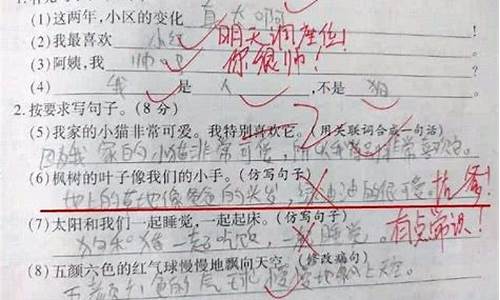 (1)这两年,小区的变化 真大啊
(2)我最喜欢 小红 明天调座位!
(3)阿姨,我 帅吧 你很帅!
(4) 我 是 人 ,不是 狗
2.按要求写句子。(8 分)
(5)我家的小猫非常可爱。我特别喜欢它。(用关联词合成一句话)
因为我家的小猫非常可爱,所以我 非常喜欢它。
(6)枫树的叶子像我们的小手。(仿写句子)
地上的草地像爸爸的头发,绿油油的很可爱。
(7)太阳和我们一起睡觉,一起起床。(仿写句子) 有点常识!
狗和猫一起吃饭,一起睡觉。
(8)五颜六色的红气球慢慢地飘向天空。(修改病句)
五颜六色的气球慢慢地飘上天空。